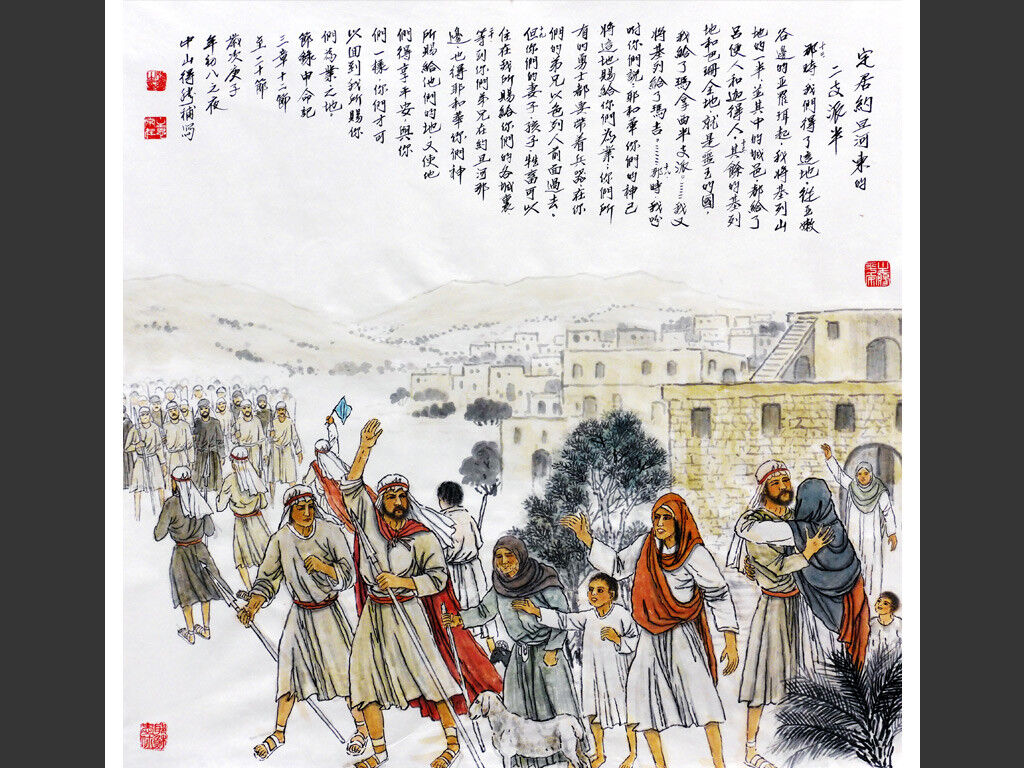 定居約旦河東的
二支派半
十二
那時,我們得了這地。從亞嫩
谷邊的亞羅珥起,我將基列山
地的一半,並其中的城邑,都給了
十三
呂便人和迦得人。其餘的基列
地和巴珊全地,就是噩去的國,
我給了瑪拿西半支派。……我又
十八
將基列給了瑪吉……那時我吩
咐你們說:耶和華你們的神已
將這地賜給你們為業;你們所
有的勇士都要帶着兵器,在你
們的弟兄以色列人前面過去。
十九
但你們的妻子、孩子、牲畜可以
住在我所賜給你們的各城裏。
等到你們弟兄在約旦河那
邊,也得耶和華你們神
所賜給他們的地,又使他
們得享平安,與你
們一樣,你們才可
以回到我所賜你
們為業之地。
節錄申命記
三章十二節
至二十節
歲次庚子
年初八之夜
中山得 補寫